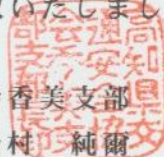 いたしまし
香美支部
村 純爾
高知県交
通安全協
会香美支
部支部長